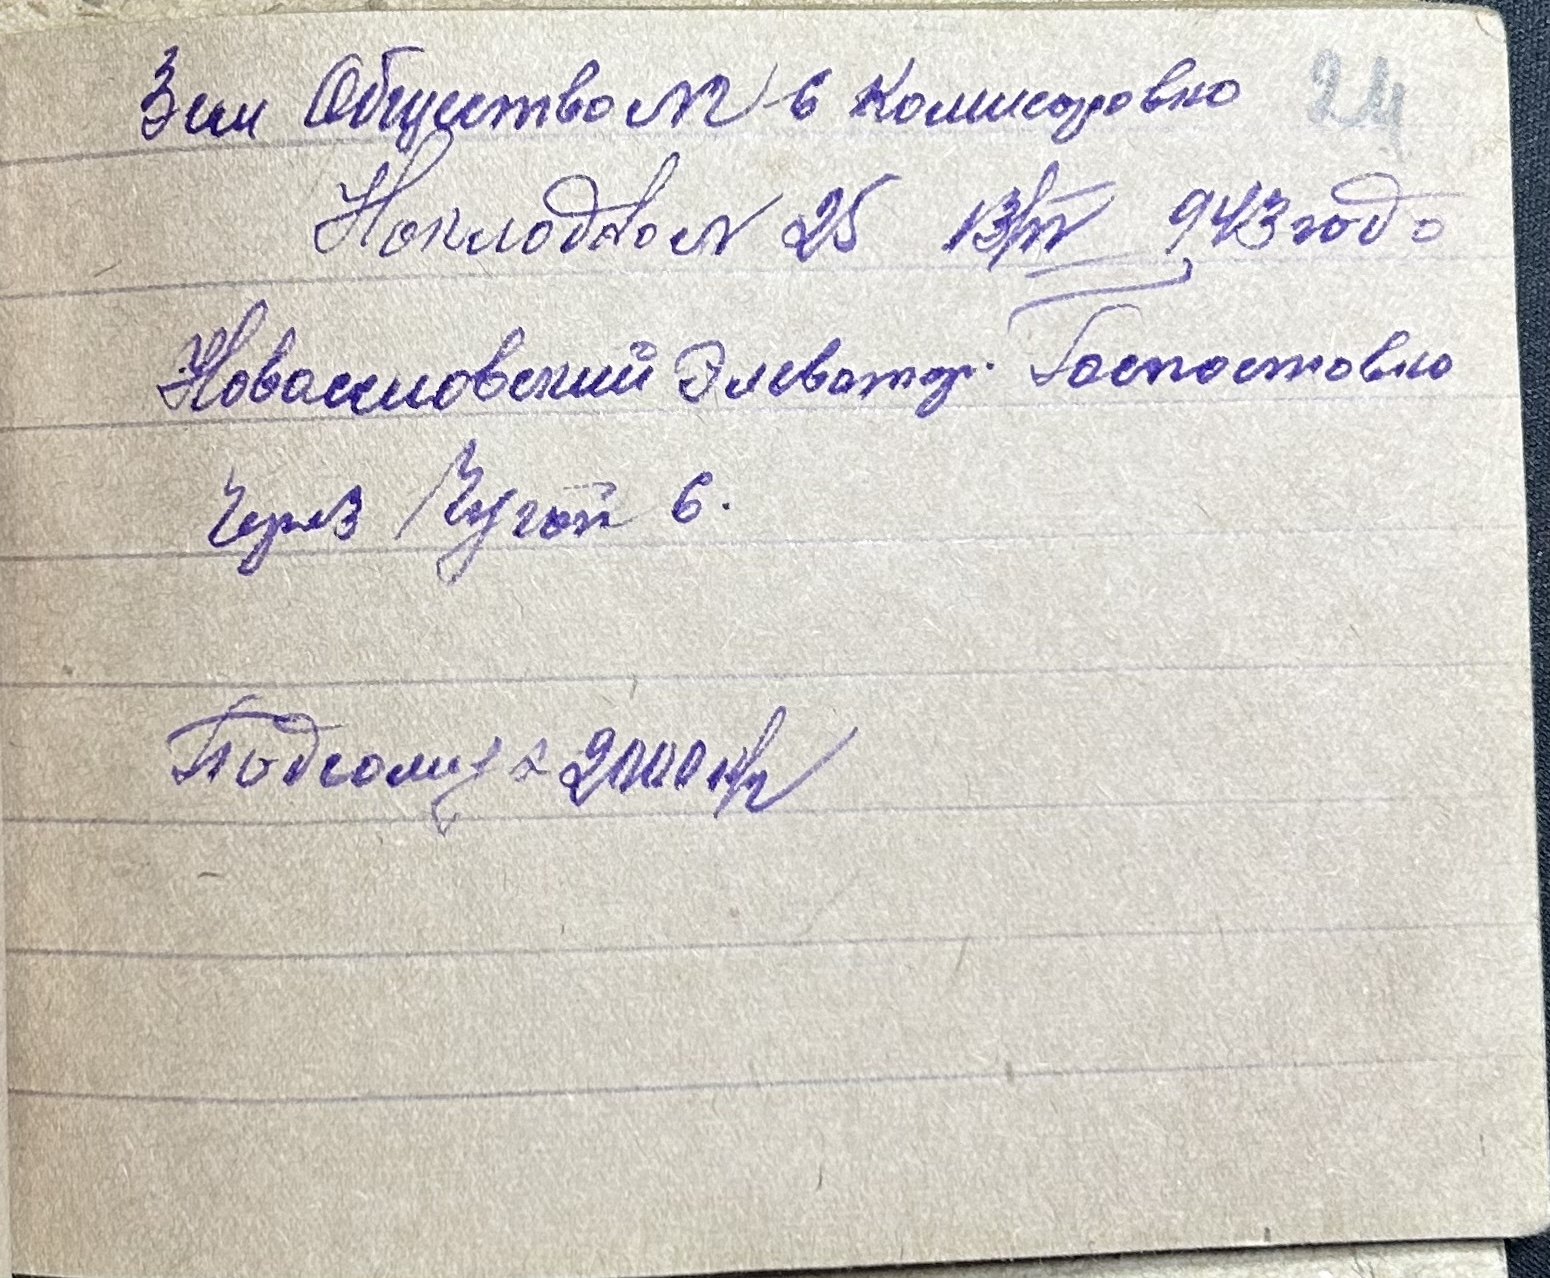 Зем Общество № 6 Комисаровка 24
Накладная № 25 13/III 943 года
Новоселовский Элеватор. Госпоставка
Через Кугот 6.
Подсолнух 2000 кг